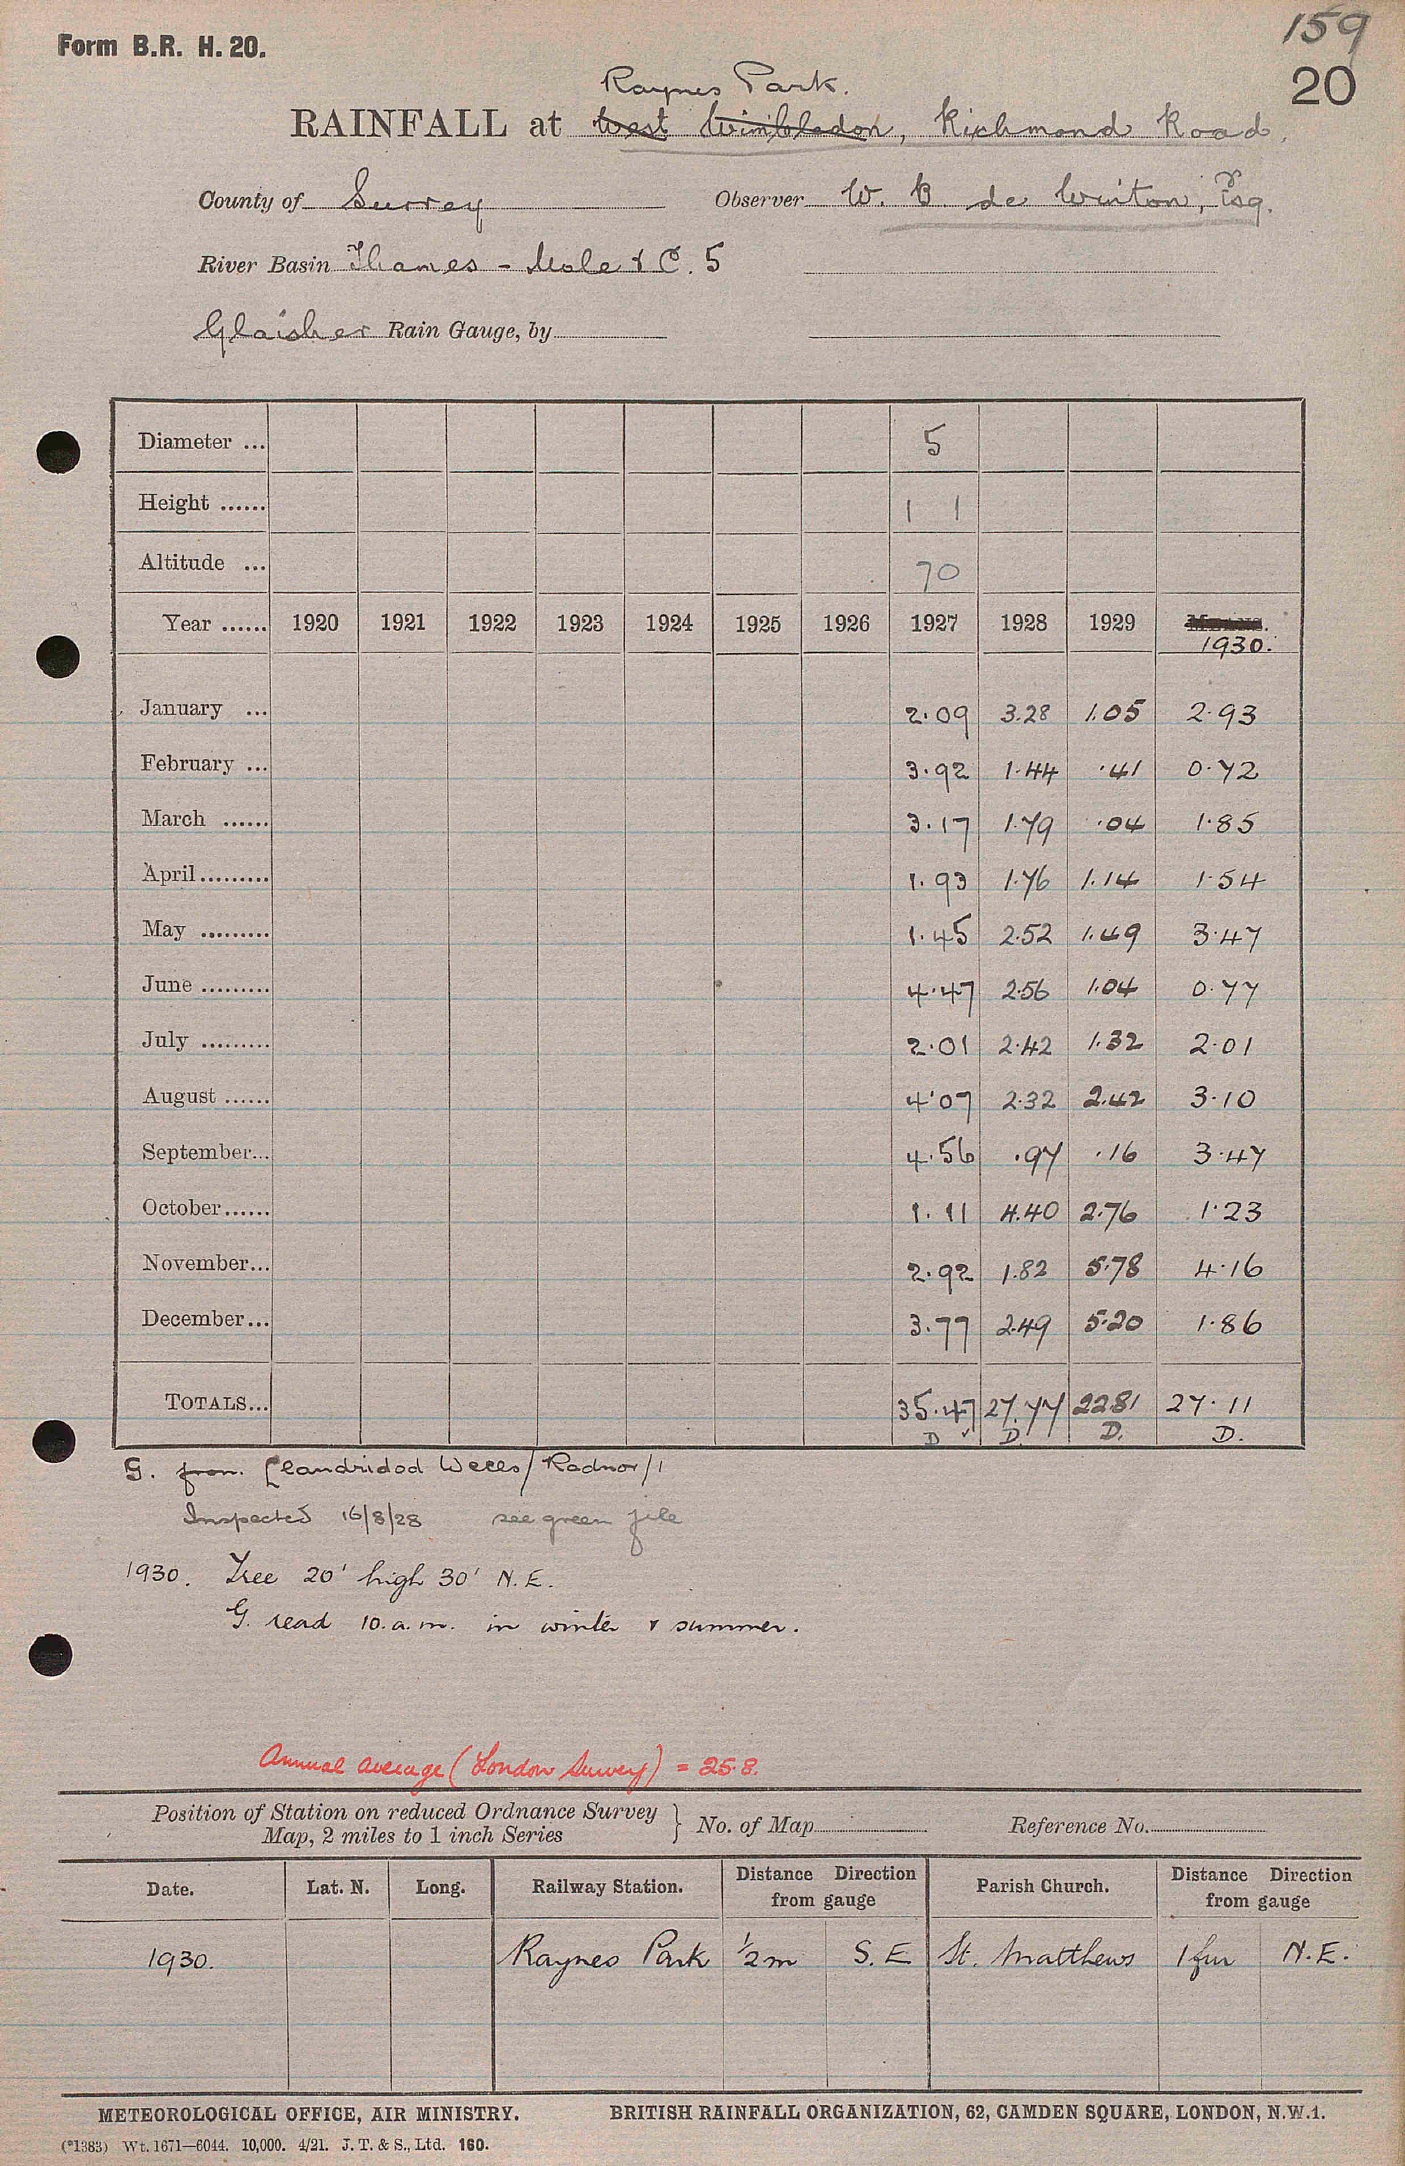 159
Form B.R. H. 20.
20
Raynes Park.
RAINFALL at West Wimbledon, Richmond Road.
County of Surrey Observer W. B. de Winton, Esq.
River Basin Thames - Mole & C. 5
Glaisher Rain Gauge, by
Diameter ... 5
Height ...... 1 1
Altitude ... 70
Year ...... 1920 1921 1922 1923 1924 1925 1926 1927 1928 1929 1930.
January ... 2.09 3.28 1.05 2.93
February ... 3.92 1.44 .41 0.72
March ...... 3.17 1.79 .04 1.85
April......... 1.93 1.76 1.14 1.54
May ......... 1.45 2.52 1.49 3.47
June ......... 4.47 2.56 1.04 0.77
July ......... 2.01 2.42 1.32 2.01
August ...... 4.07 2.32 2.42 3.10
September... 4.56 .97 .16 3.47
October...... 1.11 4.40 2.76 1.23
November... 2.92 1.82 5.78 4.16
December... 3.77 2.49 5.20 1.86
TOTALS... 35.47 27.77 22.81 27.11
D ✓ D. D. D.
G. from Llandridod Wells/Radnor/1
Inspected 16/8/28 see green file
1930. Tree 20' high 30' N.E.
G. read 10.a.m. in winter & summer.
Annual average (London Survey) = 25.8.
Position of Station on reduced Ordnance Survey
Map, 2 miles to 1 inch Series } No. of Map Reference No.
Date. Lat. N. Long. Railway Station. Distance Direction from gauge Parish Church. Distance Direction from gauge
1930. Raynes Park 1/2 m S.E St. Matthews 1 fur N.E.
METEOROLOGICAL OFFICE, AIR MINISTRY. BRITISH RAINFALL ORGANIZATION, 62, CAMDEN SQUARE, LONDON, N.W.1.
(*1383) Wt. 1671—6044. 10,000. 4/21. J. T. & S., Ltd. 160.